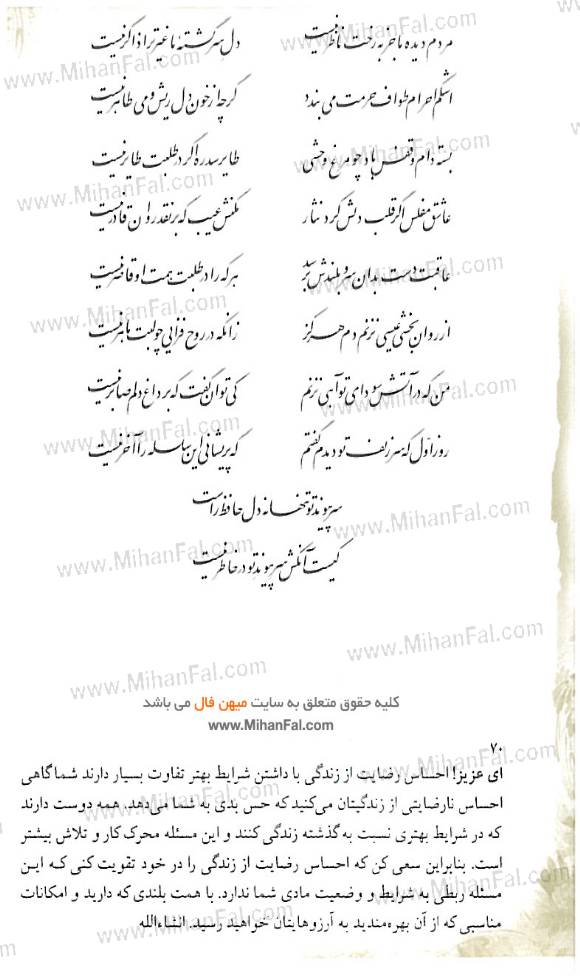 مردم دیده ما جز به رخت ناظر نیست دل سرگشته ما غیر ترا ذاکر نیست
اشکم احرام طواف حرمت می بندد گرچه از خون دل ریش دمی طاهر نیست
بسته دام و قفس باد چو مرغ وحشی طایر سدره اگر در طلبت طایر نیست
عاشق مفلس اگر قلب دلش کرد نثار مکنش عیب که بر نقد روان قادر نیست
عاقبت دست بدان سرو بلندش برسد هر که را در طلبت همت او قاصر نیست
از روان بخشی عیسی نزنم دم هرگز زانکه در روح فزایی چو لبت ماهر نیست
من که در آتش سودای تو آهی نزنم کی توان گفت که بر داغ دلم صابر نیست
روز اول که سر زلف تو دیدم گفتم که پریشانی این سلسله را آخر نیست
سر پیوند تو تنها نه دل حافظ راست
کیست آنکش سر پیوند تو در خاطر نیست
کلیه حقوق متعلق به سایت میهن فال می باشد
www.MihanFal.com
۷۰
ای عزیز! احساس رضایت از زندگی با داشتن شرایط بهتر تفاوت بسیار دارند شما گاهی
احساس نارضایتی از زندگیتان می‌کنید که حس بدی به شما می‌دهد. همه دوست دارند
که در شرایط بهتری نسبت به گذشته زندگی کنند و این مسئله محرک کار و تلاش بیشتر
است. بنابراین سعی کن که احساس رضایت از زندگی را در خود تقویت کنی که این
مسئله ربطی به شرایط و وضعیت مادی شما ندارد. با همت بلندی که دارید و امکانات
مناسبی که از آن بهره‌مندید به آرزوهایتان خواهید رسید. انشاءالله